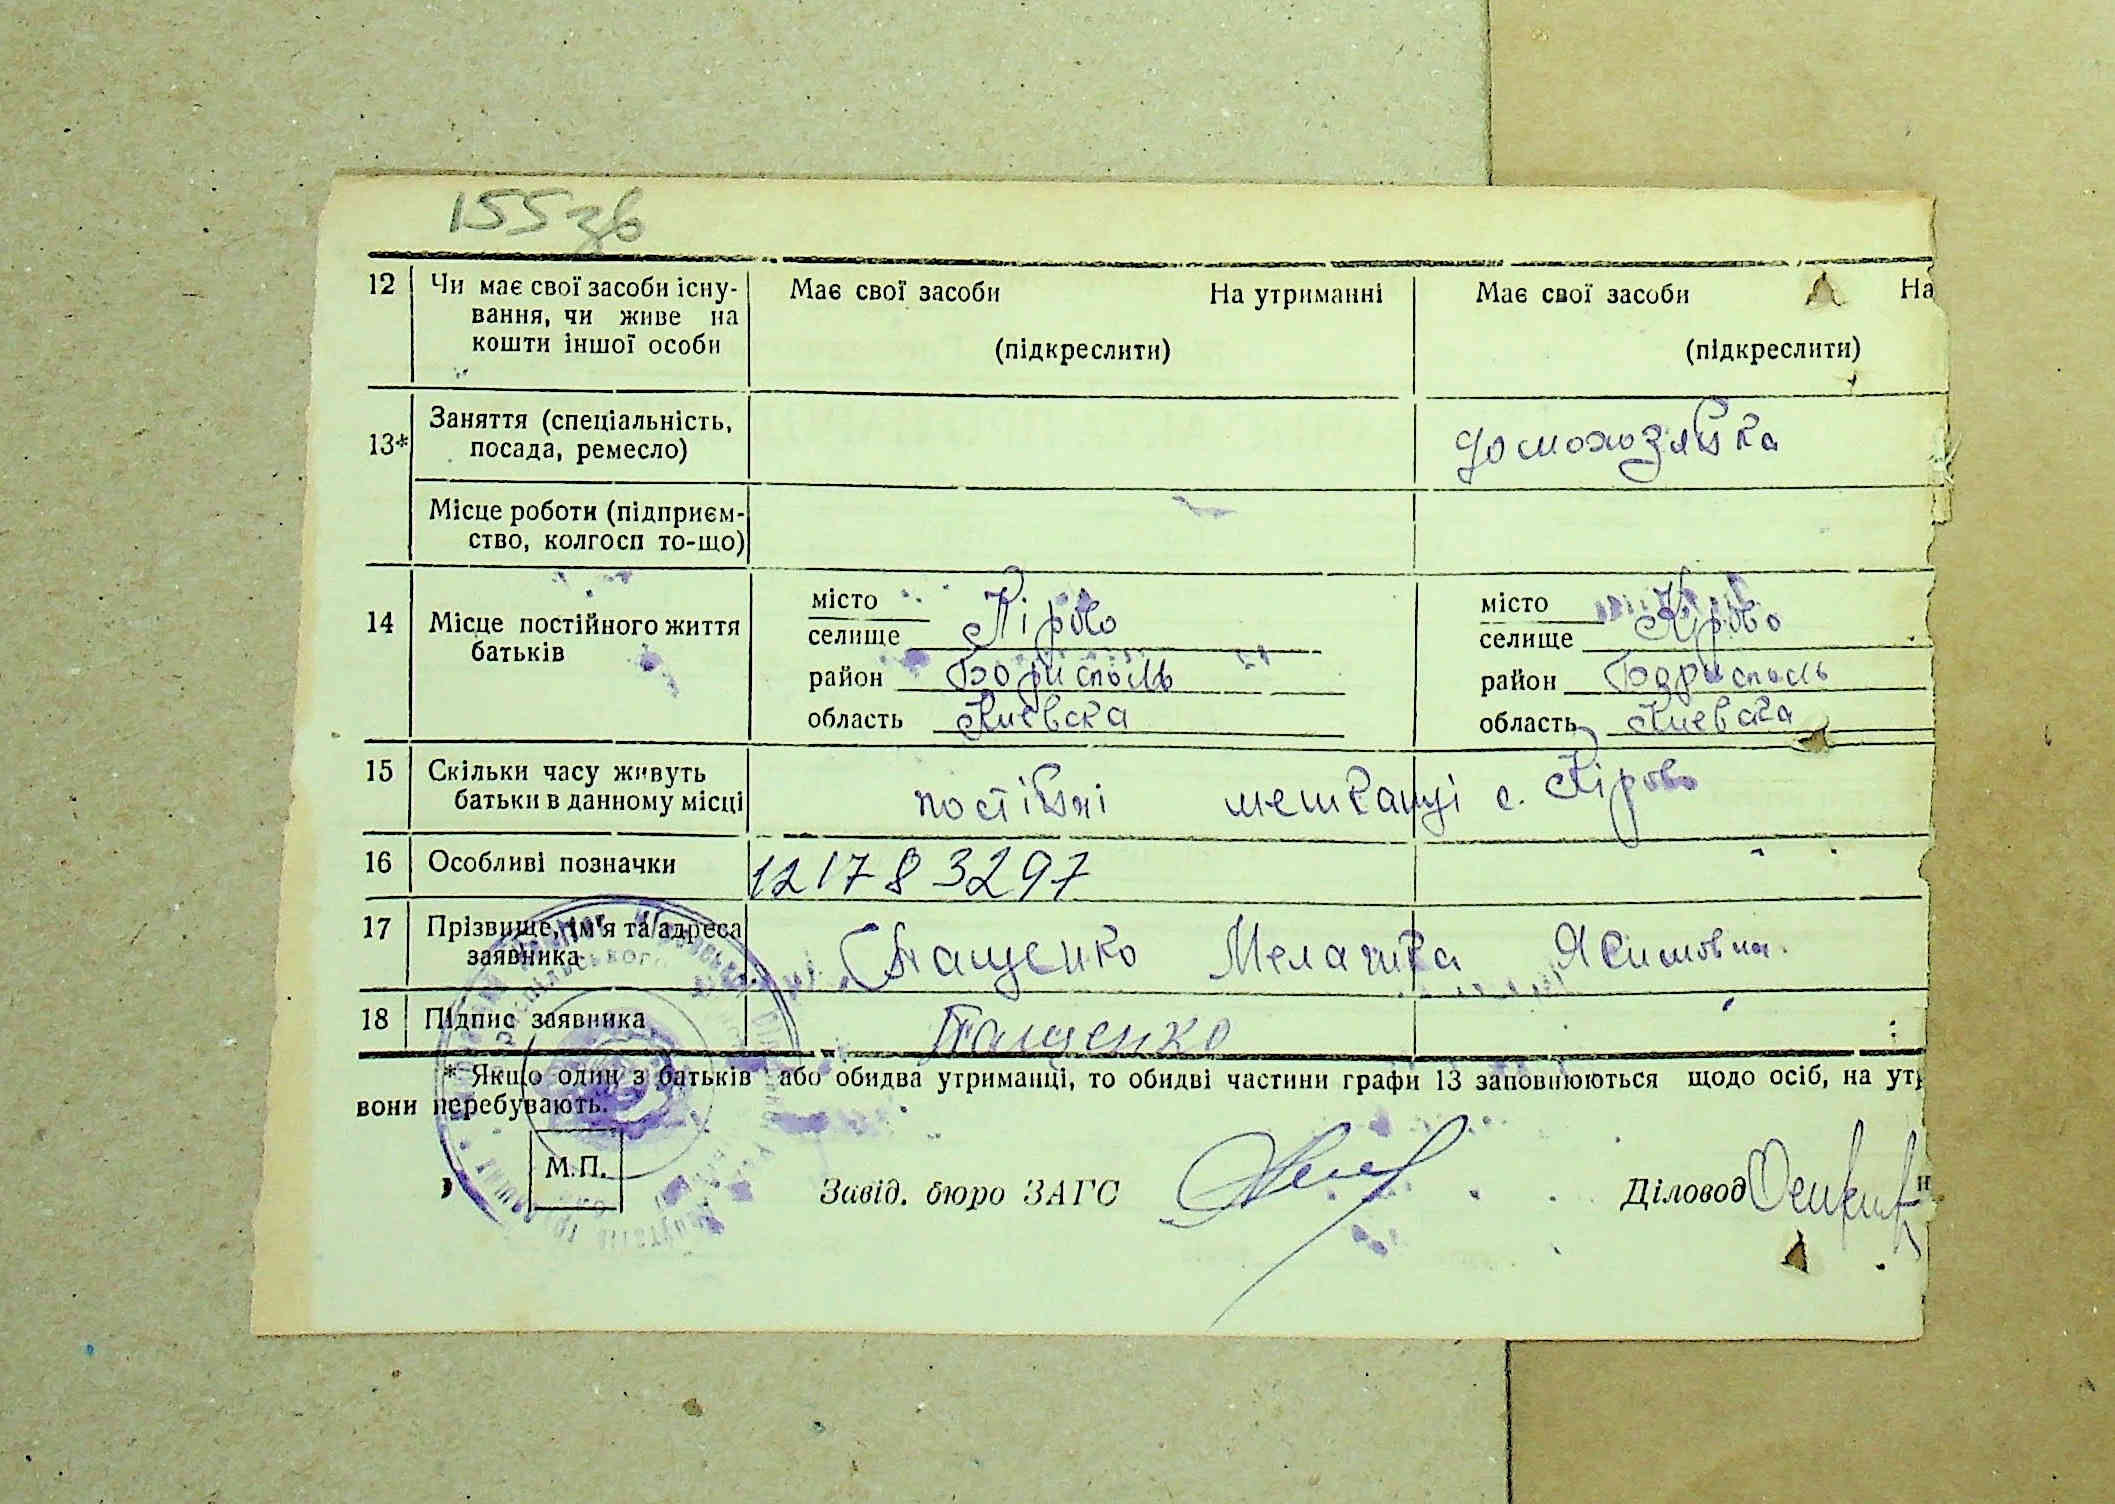 155 зв
12 Чи має свої засоби існу- Має свої засоби На утриманні Має свої засоби На
вання, чи живе на
кошти іншої особи (підкреслити) (підкреслити)
13* Заняття (спеціальність, домохозяйка
посада, ремесло)
Місце роботи (підприєм-
ство, колгосп то-що)
14 Місце постійного життя місто Кірово місто Кірово
батьків селище селище
район Бориспіль район Бориспіль
область Киевска область Киевска
15 Скільки часу живуть постійні мешканці с. Кірово
батьки в данному місці
16 Особливі позначки 1217 8 3297
17 Прізвище, ім'я та адреса Пащенко Мелашка Якимовна.
заявника
18 Підпис заявника Пащенко
* Якщо один з батьків або обидва утриманці, то обидві частини графи 13 заповнюються щодо осіб, на ут
вони перебувають.
М.П.
Завід. бюро ЗАГС Діловод